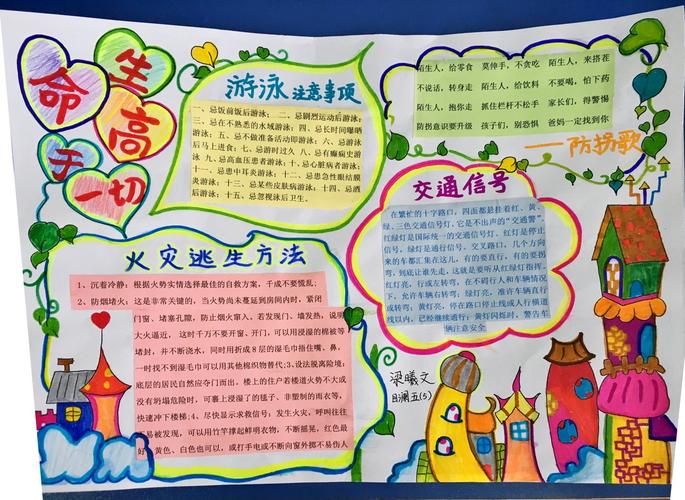 生命高于一切
游泳注意事项
一、忌饭前饭后游泳；二、忌剧烈运动后游
泳；三、忌在不熟悉的水域游泳；四、忌长时间曝晒
游泳；五、忌不做准备活动即游泳；六、忌游泳
后马上进食；七、忌游时过久 八、忌有癫痫史游
泳 九、忌高血压患者游泳；十、忌心脏病者游泳；
十一、忌患中耳炎游泳；十二、忌患急性眼结膜
炎游泳；十三、忌某些皮肤病游泳；十四、忌酒
后游泳；十五、忌忽视泳后卫生。
陌生人，给零食 莫伸手，不贪吃 陌生人，来搭茬
不说话，转身走 陌生人，给饮料 不要喝，怕下药
陌生人，抱你走 抓住栏杆不松手 家长们，得警惕
防拐意识要升级 孩子们，别恐惧 爸妈一定找到你
——防拐歌
交通信号
在繁忙的十字路口，四面都悬挂着红、黄、
绿、三色交通信号灯，它是不出声的“交通警”。
红绿灯是国际统一的交通信号灯。红灯是停止
信号，绿灯是通行信号。交叉路口，几个方向
来的车都汇集在这儿，有的要直行，有的要拐
弯，到底让谁先走，这就是要听从红绿灯指挥。
红灯亮，行或左转弯，在不碍行人和车辆情况
下，允许车辆右转弯；绿灯亮，准许车辆直行
或转弯；黄灯亮，停在路口停止线或人行横道
线以内，已经继续通行；黄灯闪烁时，警告车
辆注意安全
火灾逃生方法
1、沉着冷静：根据火势实情选择最佳的自救方案，千成不要慌乱；
2、防烟堵火：这是非常关键的，当火势尚未蔓延到房间内时，紧闭
门窗、堵塞孔隙，防止烟火窜入。若发现门、墙发热，说明
大火逼近，这时千万不要开窗、开门，可以用浸湿的棉被等
堵封，并不断浇水，同时用折成8层的湿毛巾捂住嘴、鼻，
一时找不到湿毛巾可以用其他棉织物替代；3、设法脱离险境：
底层的居民自然应夺门而出。楼上的住户若楼道火势不大或
没有坍塌危险时，可裹上浸湿了的毯子、非塑制的雨衣等，
快速冲下楼梯；4、尽快显示求救信号；发生火灾，呼叫往往
不易被发现，可以用竹竿撑起鲜明衣物，不断摇晃，红色最
好，黄色、白色也可以，或打手电或不断向窗外掷不易伤人
梁曦文
五(5)